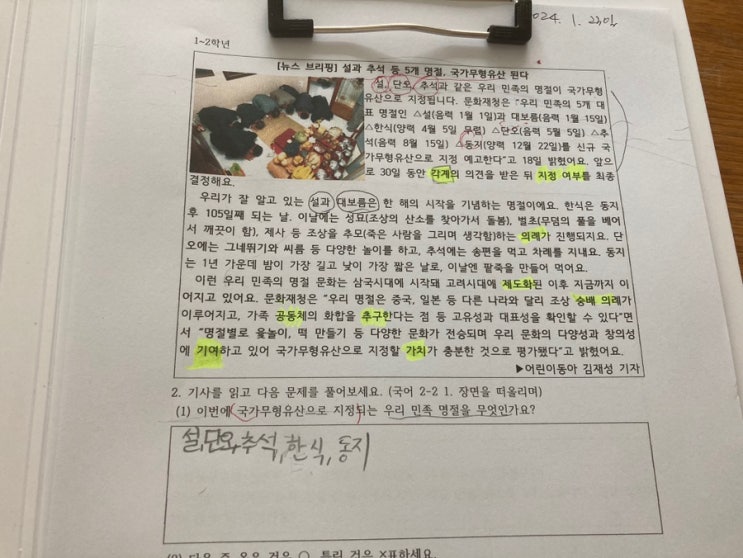 2024. 1. 23일
1~2학년
[뉴스 브리핑] 설과 추석 등 5개 명절, 국가무형유산 된다
설, 단오, 추석과 같은 우리 민족의 명절이 국가무형
유산으로 지정됩니다. 문화재청은 “우리 민족의 5개 대
표 명절인 △설(음력 1월 1일)과 대보름(음력 1월 15일)
△한식(양력 4월 5일 무렵) △단오(음력 5월 5일) △추
석(음력 8월 15일) △동지(양력 12월 22일)를 신규 국
가무형유산으로 지정 예고한다”고 18일 밝혔어요. 앞으
로 30일 동안 각계의 의견을 받은 뒤 지정 여부를 최종
결정해요.
우리가 잘 알고 있는 설과 대보름은 한 해의 시작을 기념하는 명절이에요. 한식은 동지
후 105일째 되는 날. 이날에는 성묘(조상의 산소를 찾아가서 돌봄), 벌초(무덤의 풀을 베어
서 깨끗이 함), 제사 등 조상을 추모(죽은 사람을 그리며 생각함)하는 의례가 진행되지요. 단
오에는 그네뛰기와 씨름 등 다양한 놀이를 하고, 추석에는 송편을 먹고 차례를 지내요. 동지
는 1년 가운데 밤이 가장 길고 낮이 가장 짧은 날로, 이날엔 팥죽을 만들어 먹어요.
이런 우리 민족의 명절 문화는 삼국시대에 시작돼 고려시대에 제도화된 이후 지금까지 이
어지고 있어요. 문화재청은 “우리 명절은 중국, 일본 등 다른 나라와 달리 조상 숭배 의례가
이루어지고, 가족 공동체의 화합을 추구한다는 점 등 고유성과 대표성을 확인할 수 있다”면
서 “명절별로 윷놀이, 떡 만들기 등 다양한 문화가 전승되며 우리 문화의 다양성과 창의성
에 기여하고 있어 국가무형유산으로 지정할 가치가 충분한 것으로 평가됐다”고 밝혔어요.
▶어린이동아 김재성 기자
2. 기사를 읽고 다음 문제를 풀어보세요. (국어 2-2 1. 장면을 떠올리며)
(1) 이번에 국가무형유산으로 지정되는 우리 민족 명절을 무엇인가요?
설,단오,추석,한식,동지
(2) 다음 중 옳은 것은 ○, 틀린 것은 X표하세요.